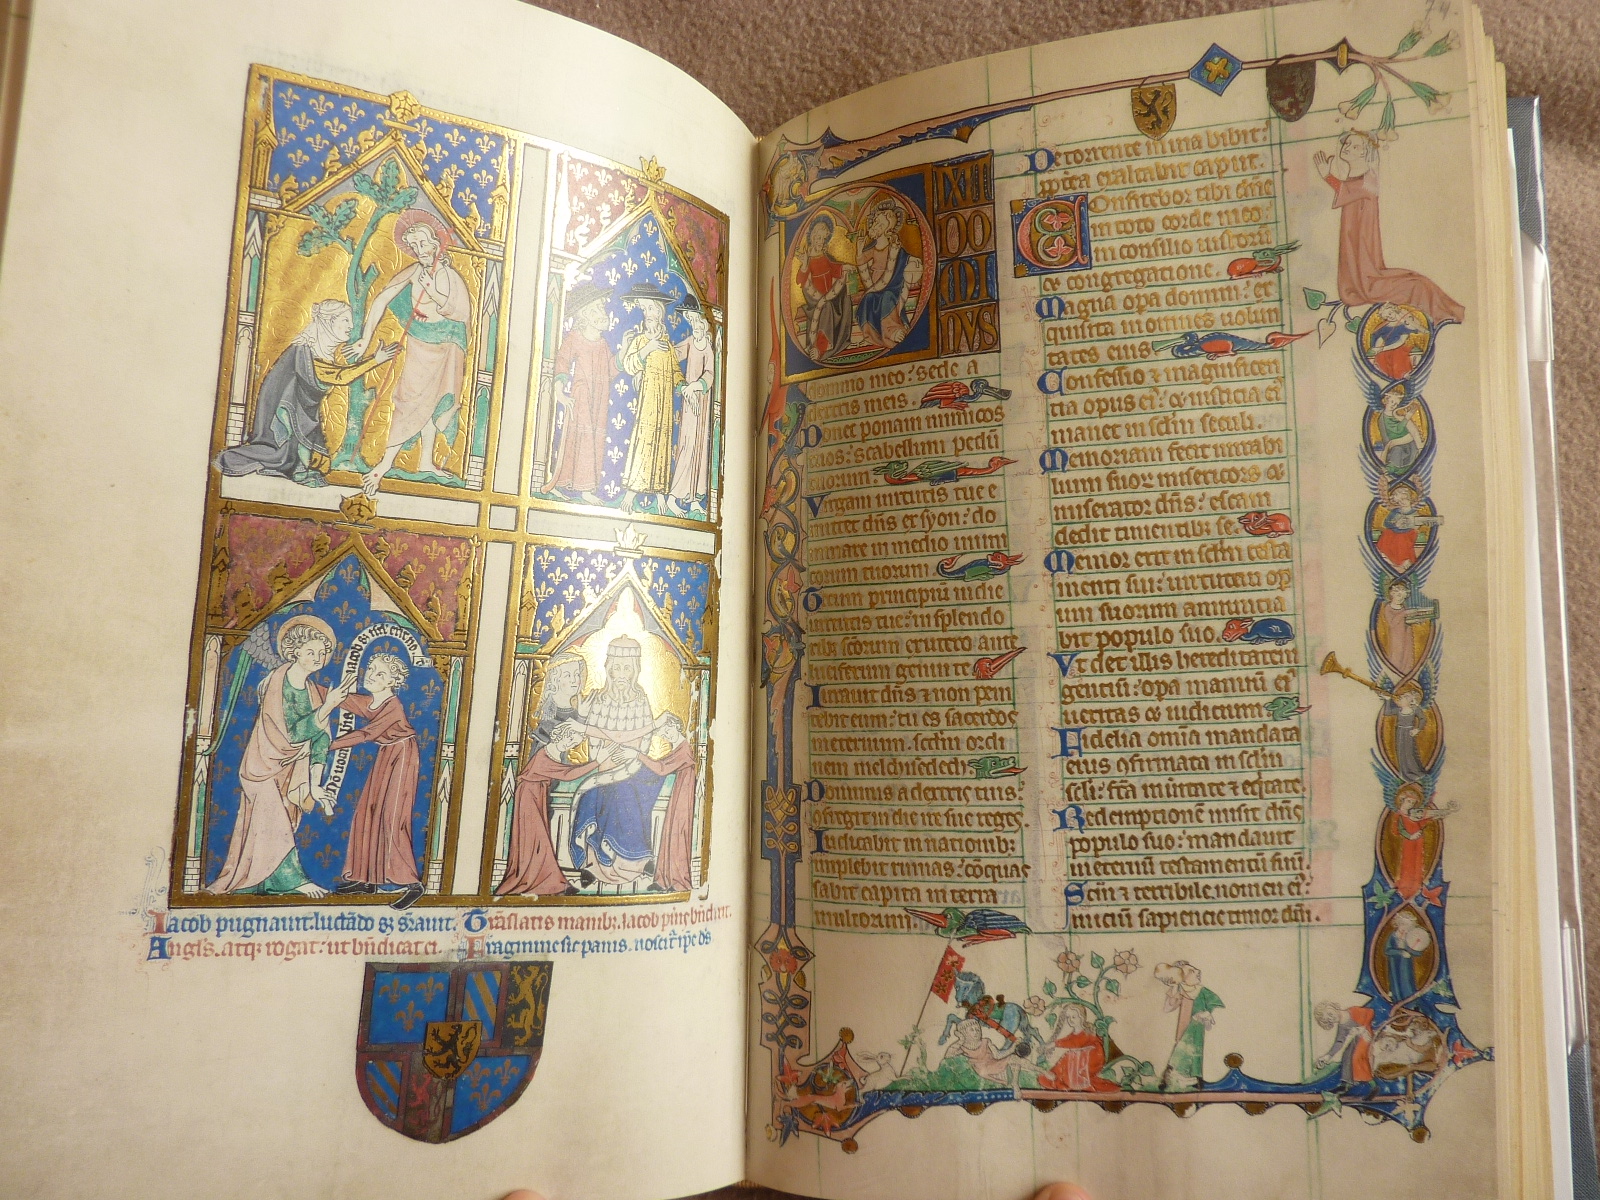 Iacob pugnauit. luctādo &
Angls. atq; rogat: ut bn̄dicat ei.
Trāslatis manib; Iacob
Fragmine sic panis. noscit̄ ip̄e ds̄
iacob &
74.
IXIT
DO
MI
NVS
domino meo: sede a
dextris meis.
Donec ponam inimicos
tuos: scabellum pedū
tuorum
Virgam uirtutis tue e
mittet dn̄s ex syon: do
minare in medio inimi
corum tuorum
Tecum principiū in die
uirtutis tue: in splendo
rib; sc̄orum ex utero ante
luciferum genui te
Iurauit dn̄s & non peni
tebit eum: tu es sacerdos
in eternum. scd̄m ordi
nem melchisedech
Dominus a dextris tuis:
ꝯfregit in die ire sue reges.
Iudicabit in nationib;
implebit ruinas: cōquas
sabit capita in terra
multorum
De torrente in uia bibit:
ꝓptea exaltabit caput.
COnfitebor tibi dn̄e
in toto corde meo:
in consilio iustorū
& congregacione.
Magna opa domini: ex
quisita in omnes uolun
tates eius
Confessio & magnificen
tia opus eī: & iusticia eī
manet in sclm̄ seculi.
Memoriam fecit mirabi
lium suoꝝ misericors &
miserator dn̄s: escam
dedit timentib; se.
Memor erit in sclm̄ testa
menti sui: uirtutem op
um suorum annuncia
bit populo suo.
Vt det illis hereditatem
gentiū: opa manuū eī
ueritas & iudicium
Fidelia omīa mandata
eius ꝯfirmata in sclm̄
sc̄li: fc̄a in ueritate & eq̄itate.
Redemptionē misit dn̄s
populo suo: mandauit
in eternū testamentū suū.
Sc̄m & terribile nomen eī:
iniciū sapiencie timor dn̄i.